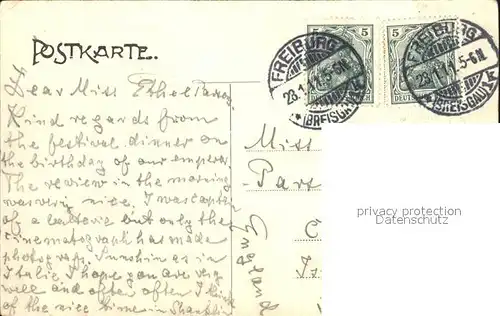 POSTKARTE.
5 5
DEUTSCHES REICH
FREIBURG
23.1.11.5-6N.
*(BREISGAU)
FREIBURG
5-6N.
(BREISGAU)
Dear Miss Ethel
Kind regards from
the festival dinner on
the birthday of our emperor
The review in the morning
was very nice. I was captain
of a batterie but only the
cinematograph has made
photographs. Sunshin as in
Italie I hope you are very
well and often often I think
of the nice time in Shanklin
Miss
England
privacy protection
Datenschutz